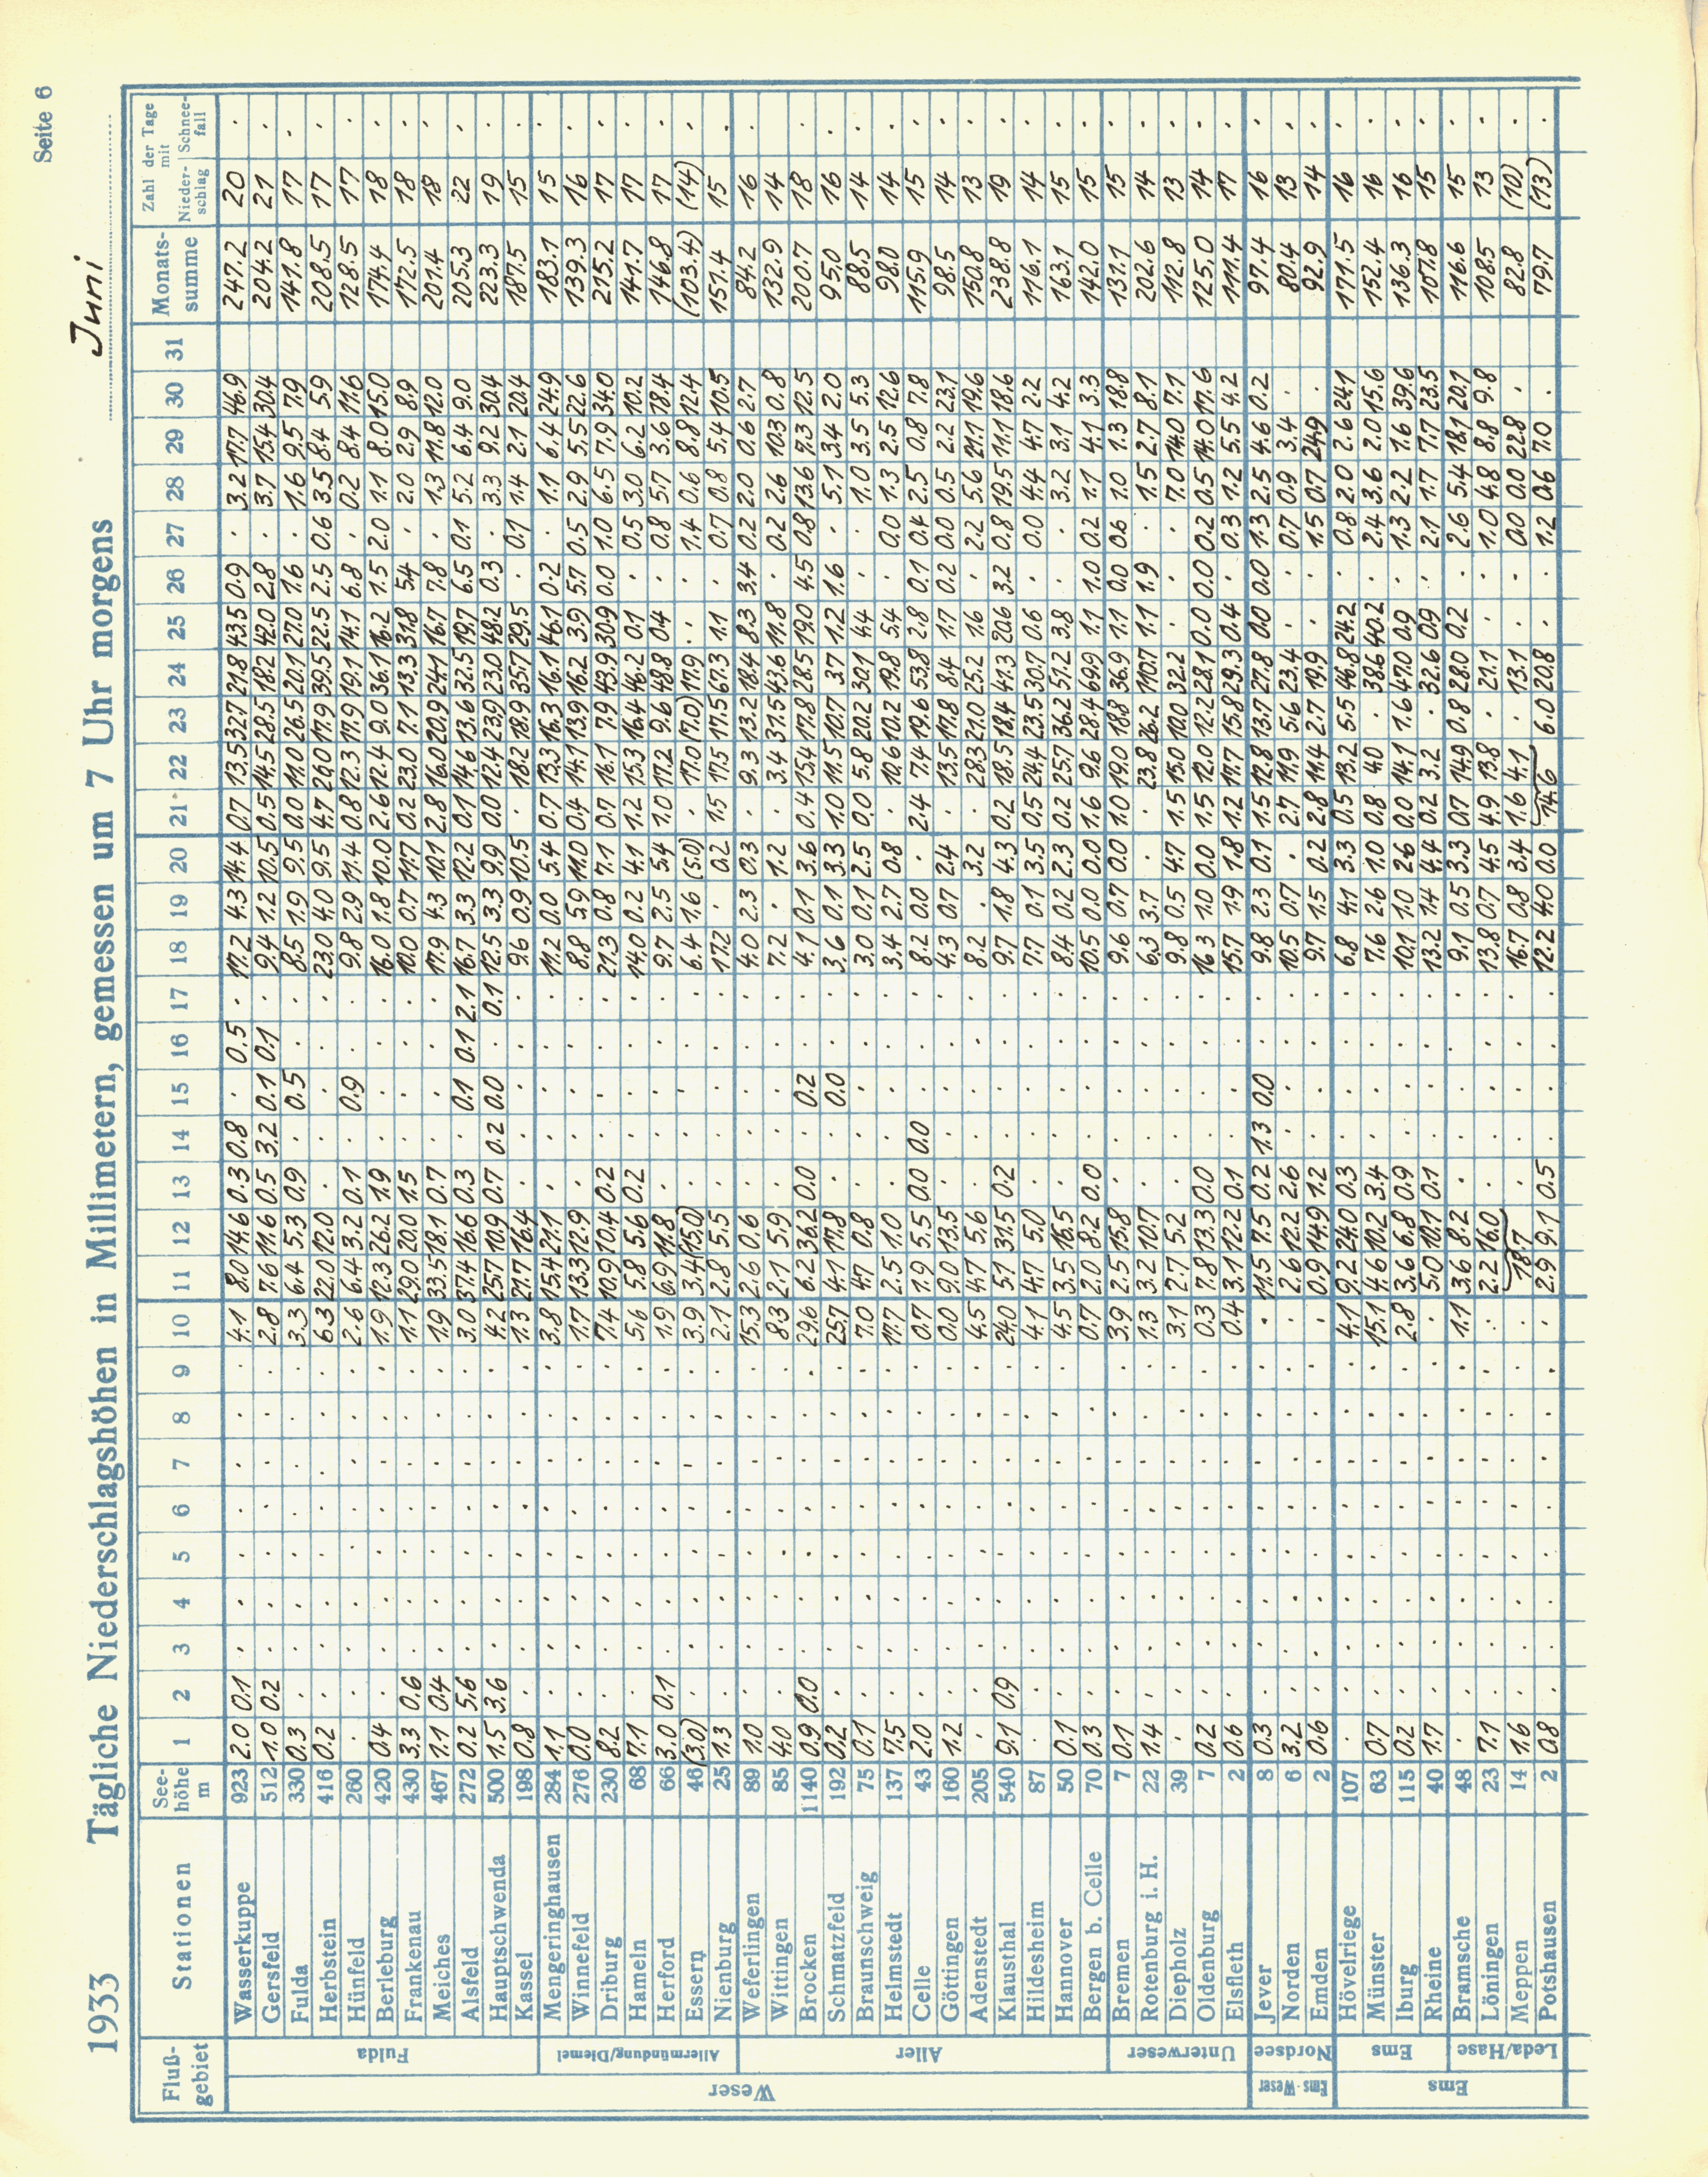 Seite 6
1933 Tägliche Niederschlagshöhen in Millimetern, gemessen um 7 Uhr morgens Juni
Fluß-gebiet Stationen See-höhe m 1 2 3 4 5 6 7 8 9 10 11 12 13 14 15 16 17 18 19 20 21 22 23 24 25 26 27 28 29 30 31 Monats-summe Zahl der Tage mit Nieder-schlag Schnee-fall
Weser
Fulda
Wasserkuppe 923 2.0 0.1 . . . . . . . 4.1 8.0 14.6 0.3 0.8 . 0.5 . 17.2 4.3 14.4 0.7 13.5 32.7 21.8 43.5 0.9 . 3.2 17.7 46.9 247.2 20 .
Gersfeld 512 1.0 0.2 . . . . . . . 2.8 7.6 11.6 0.5 3.2 0.1 0.1 . 9.4 1.2 10.5 0.5 14.5 28.5 18.2 42.0 2.8 . 3.7 15.4 30.4 204.2 21 .
Fulda 330 0.3 . . . . . . . . 3.3 6.4 5.3 0.9 . 0.5 . . 8.5 1.9 9.5 0.0 11.0 26.5 20.1 27.0 1.6 . 1.6 9.5 7.9 141.8 17 .
Herbstein 416 0.2 . . . . . . . . 6.3 22.0 12.0 . . . . . 23.0 4.0 9.5 4.7 26.0 17.9 39.5 22.5 2.5 0.6 3.5 8.4 5.9 208.5 17 .
Hünfeld 260 . . . . . . . . . 2.6 6.4 3.2 0.1 . 0.9 . . 9.8 2.9 11.4 0.8 12.3 17.9 19.1 14.1 6.8 . 0.2 8.4 11.6 128.5 17 .
Berleburg 420 0.4 . . . . . . . . 1.9 12.3 26.2 1.9 . . . . 16.0 1.8 10.0 2.6 12.4 9.0 36.1 16.2 1.5 2.0 1.1 8.0 15.0 174.4 18 .
Frankenau 430 3.3 0.6 . . . . . . . 1.1 29.0 20.0 1.5 . . . . 10.0 0.7 11.7 0.2 23.0 7.1 13.3 31.8 5.4 . 2.0 2.9 8.9 172.5 18 .
Meiches 467 1.1 0.4 . . . . . . . 1.9 33.5 18.1 0.7 . . . . 17.9 4.3 10.1 2.8 16.0 20.9 24.1 16.7 7.8 . 1.3 11.8 12.0 201.4 18 .
Alsfeld 272 0.2 5.6 . . . . . . . 3.0 37.4 16.6 0.3 . 0.1 0.1 2.1 16.7 3.3 12.2 0.1 14.6 13.6 32.5 19.7 6.5 0.1 5.2 6.4 9.0 205.3 22 .
Hauptschwenda 500 1.5 3.6 . . . . . . . 4.2 25.7 10.9 0.7 0.2 0.0 . 0.1 12.5 3.3 9.9 0.0 12.4 23.9 23.0 48.2 0.3 . 3.3 9.2 30.4 223.3 19 .
Kassel 198 0.8 . . . . . . . . 1.3 21.7 16.4 . . . . . 9.6 0.9 10.5 . 18.2 18.9 35.7 29.5 . 0.1 1.4 2.1 20.4 187.5 15 .
Allermündung/Diemel
Mengeringhausen 284 1.1 . . . . . . . . 3.8 15.4 21.1 . . . . . 11.2 0.0 5.4 0.7 13.3 16.3 16.1 46.1 0.2 . 1.1 6.4 24.9 183.1 15 .
Winnefeld 276 0.0 . . . . . . . . 1.7 13.3 12.9 . . . . . 8.8 5.9 11.0 0.4 14.1 13.9 16.2 3.9 5.7 0.5 2.9 5.5 22.6 139.3 16 .
Driburg 230 8.2 . . . . . . . . 7.4 10.9 10.4 0.2 . . . . 21.3 0.8 7.1 0.7 16.1 7.9 43.9 30.9 0.0 1.0 6.5 7.9 34.0 215.2 17 .
Hameln 68 7.1 . . . . . . . . 5.6 5.8 5.6 0.2 . . . . 14.0 0.2 4.1 1.2 15.3 16.4 46.2 0.1 . 0.5 3.0 6.2 10.2 141.7 17 .
Herford 66 3.0 0.1 . . . . . . . 1.9 6.9 11.8 . . . . . 9.7 2.5 5.4 1.0 17.2 9.6 48.8 0.4 . 0.8 5.7 3.6 18.4 146.8 17 .
Essern 46 (3.0) . . . . . . . . 3.9 3.4 (15.0) . . . . . 6.4 1.6 (5.0) . 17.0 (17.0) 17.9 . . 1.4 0.6 8.8 12.4 (103.4) (14) .
Nienburg 25 1.3 . . . . . . . . 2.1 2.8 5.5 . . . . . 17.2 . 0.2 1.5 17.5 17.5 67.3 1.1 . 0.7 0.8 5.4 10.5 151.4 15 .
Aller
Weferlingen 89 1.0 . . . . . . . . 15.3 2.6 0.6 . . . . . 4.0 2.3 0.3 . 9.3 13.2 18.4 8.3 3.4 0.2 2.0 0.6 2.7 84.2 16 .
Wittingen 85 4.0 . . . . . . . . 8.3 2.1 5.9 . . . . . 7.2 . 1.2 . 3.4 37.5 43.6 11.8 . 0.2 2.6 10.3 0.8 132.9 14 .
Brocken 1140 0.9 0.0 . . . . . . . 29.6 6.2 36.2 0.0 . 0.2 . . 4.1 0.1 3.6 0.4 15.4 17.8 28.5 19.0 4.5 0.8 13.6 7.3 12.5 200.7 18 .
Schmatzfeld 192 0.2 . . . . . . . . 25.7 4.1 17.8 . . 0.0 . . 3.6 0.1 3.3 1.0 11.5 10.7 3.7 1.2 1.6 . 5.1 3.4 2.0 95.0 16 .
Braunschweig 75 0.1 . . . . . . . . 7.0 4.7 0.8 . . . . . 3.0 0.1 2.5 0.0 5.8 20.2 30.1 4.4 . . 1.0 3.5 5.3 88.5 14 .
Helmstedt 137 7.5 . . . . . . . . 17.7 2.5 1.0 . . . . . 3.4 2.7 0.8 . 10.6 10.2 19.8 5.4 . 0.0 1.3 2.5 12.6 98.0 14 .
Celle 43 2.0 . . . . . . . . 0.7 1.9 5.5 0.0 0.0 . . . 8.2 0.0 . 2.4 7.4 19.6 53.8 2.8 0.1 0.4 2.5 0.8 7.8 115.9 15 .
Göttingen 160 1.2 . . . . . . . . 0.0 9.0 13.5 . . . . . 4.3 0.7 2.4 . 13.5 17.8 8.4 1.7 0.2 0.0 0.5 2.2 23.1 98.5 14 .
Adenstedt 205 . . . . . . . . . 4.5 4.7 5.6 . . . . . 8.2 . 3.2 . 28.3 21.0 25.2 1.6 . 2.2 5.6 21.1 19.6 150.8 13 .
Klausthal 540 9.1 0.9 . . . . . . . 24.0 5.1 31.5 0.2 . . . . 9.7 1.8 4.3 0.2 18.5 18.4 41.3 20.6 3.2 0.8 19.5 11.1 18.6 238.8 19 .
Hildesheim 87 . . . . . . . . . 4.1 4.7 5.0 . . . . . 7.7 0.1 3.5 0.5 24.4 23.5 30.7 0.6 . 0.0 4.4 4.7 2.2 116.1 14 .
Hannover 50 0.1 . . . . . . . . 4.5 3.5 16.5 . . . . . 8.4 0.2 2.3 0.2 25.7 36.2 51.2 3.8 . . 3.2 3.1 4.2 163.1 15 .
Bergen b. Celle 70 0.3 . . . . . . . . 0.7 2.0 8.2 0.0 . . . . 10.5 0.0 0.0 1.6 9.6 28.4 69.9 1.1 1.0 0.2 1.1 4.1 3.3 142.0 15 .
Unterweser
Bremen 7 0.1 . . . . . . . . 3.9 2.5 15.8 . . . . . 9.6 0.7 0.0 1.0 19.0 18.8 36.9 1.1 0.0 0.6 1.0 1.3 18.8 131.1 15 .
Rotenburg i. H. 22 1.4 . . . . . . . . 1.3 3.2 10.7 . . . . . 6.3 3.7 . . 23.8 26.2 110.7 1.1 1.9 . 1.5 2.7 8.1 202.6 14 .
Diepholz 39 . . . . . . . . . 3.1 2.7 5.2 . . . . . 9.8 0.5 4.7 1.5 15.0 10.0 32.2 . . . 7.0 14.0 7.1 112.8 13 .
Oldenburg 7 0.2 . . . . . . . . 0.3 7.8 13.3 0.0 . . . . 16.3 1.0 0.0 1.5 12.0 12.2 28.1 0.0 0.0 0.2 0.5 14.0 17.6 125.0 14 .
Elsfleth 2 0.6 . . . . . . . . 0.4 3.1 12.2 0.1 . . . . 15.7 1.9 1.8 1.2 17.7 15.8 29.3 0.4 . 0.3 1.2 5.5 4.2 111.4 17 .
Ems-Weser
Nordsee
Jever 8 0.3 . . . . . . . . . 11.5 7.5 0.2 1.3 0.0 . . 9.8 2.3 0.1 1.5 12.8 13.7 27.8 0.0 0.0 1.3 2.5 4.6 0.2 97.4 16 .
Norden 6 3.2 . . . . . . . . . 2.6 12.2 2.6 . . . . 10.5 0.7 . 2.7 11.9 5.6 23.4 . . 0.7 0.9 3.4 . 80.4 13 .
Emden 2 0.6 . . . . . . . . . 0.9 14.9 1.2 . . . . 9.7 1.5 0.2 2.8 11.4 2.7 19.9 . . 1.5 0.7 24.9 . 92.9 14 .
Ems
Ems
Hövelriege 107 . . . . . . . . . 4.1 9.2 24.0 0.3 . . . . 6.8 4.1 3.3 0.5 13.2 5.5 46.8 24.2 . 0.8 2.0 2.6 24.1 171.5 16 .
Münster 63 0.7 . . . . . . . . 15.1 4.6 10.2 3.4 . . . . 7.6 2.6 1.0 0.8 4.0 . 38.6 40.2 . 2.4 3.6 2.0 15.6 152.4 16 .
Iburg 115 0.2 . . . . . . . . 2.8 3.6 6.8 0.9 . . . . 10.1 1.0 2.6 0.0 14.1 1.6 47.0 0.9 . 1.3 2.2 1.6 39.6 136.3 16 .
Rheine 40 1.7 . . . . . . . . . 5.0 10.1 0.1 . . . . 13.2 1.4 4.4 0.2 3.2 . 32.6 0.9 . 2.1 1.7 7.7 23.5 107.8 15 .
Leda/Hase
Bramsche 48 . . . . . . . . . 1.1 3.6 8.2 . . . . . 9.1 0.5 3.3 0.7 14.9 0.8 28.0 0.2 . 2.6 5.4 18.1 20.1 116.6 15 .
Löningen 23 7.1 . . . . . . . . . 2.2 16.0 . . . . . 13.8 0.7 4.5 4.9 13.8 . 21.1 . . 1.0 4.8 8.8 9.8 108.5 13 .
Meppen 14 1.6 . . . . . . . . . 18.7 . . . . . 16.7 0.8 3.4 1.6 4.1 . 13.1 . . 0.0 0.0 22.8 . 82.8 (10) .
Potshausen 2 0.8 . . . . . . . . . 2.9 9.1 0.5 . . . . 12.2 4.0 0.0 14.6 6.0 20.8 . . 1.2 0.6 7.0 . 79.7 (13) .